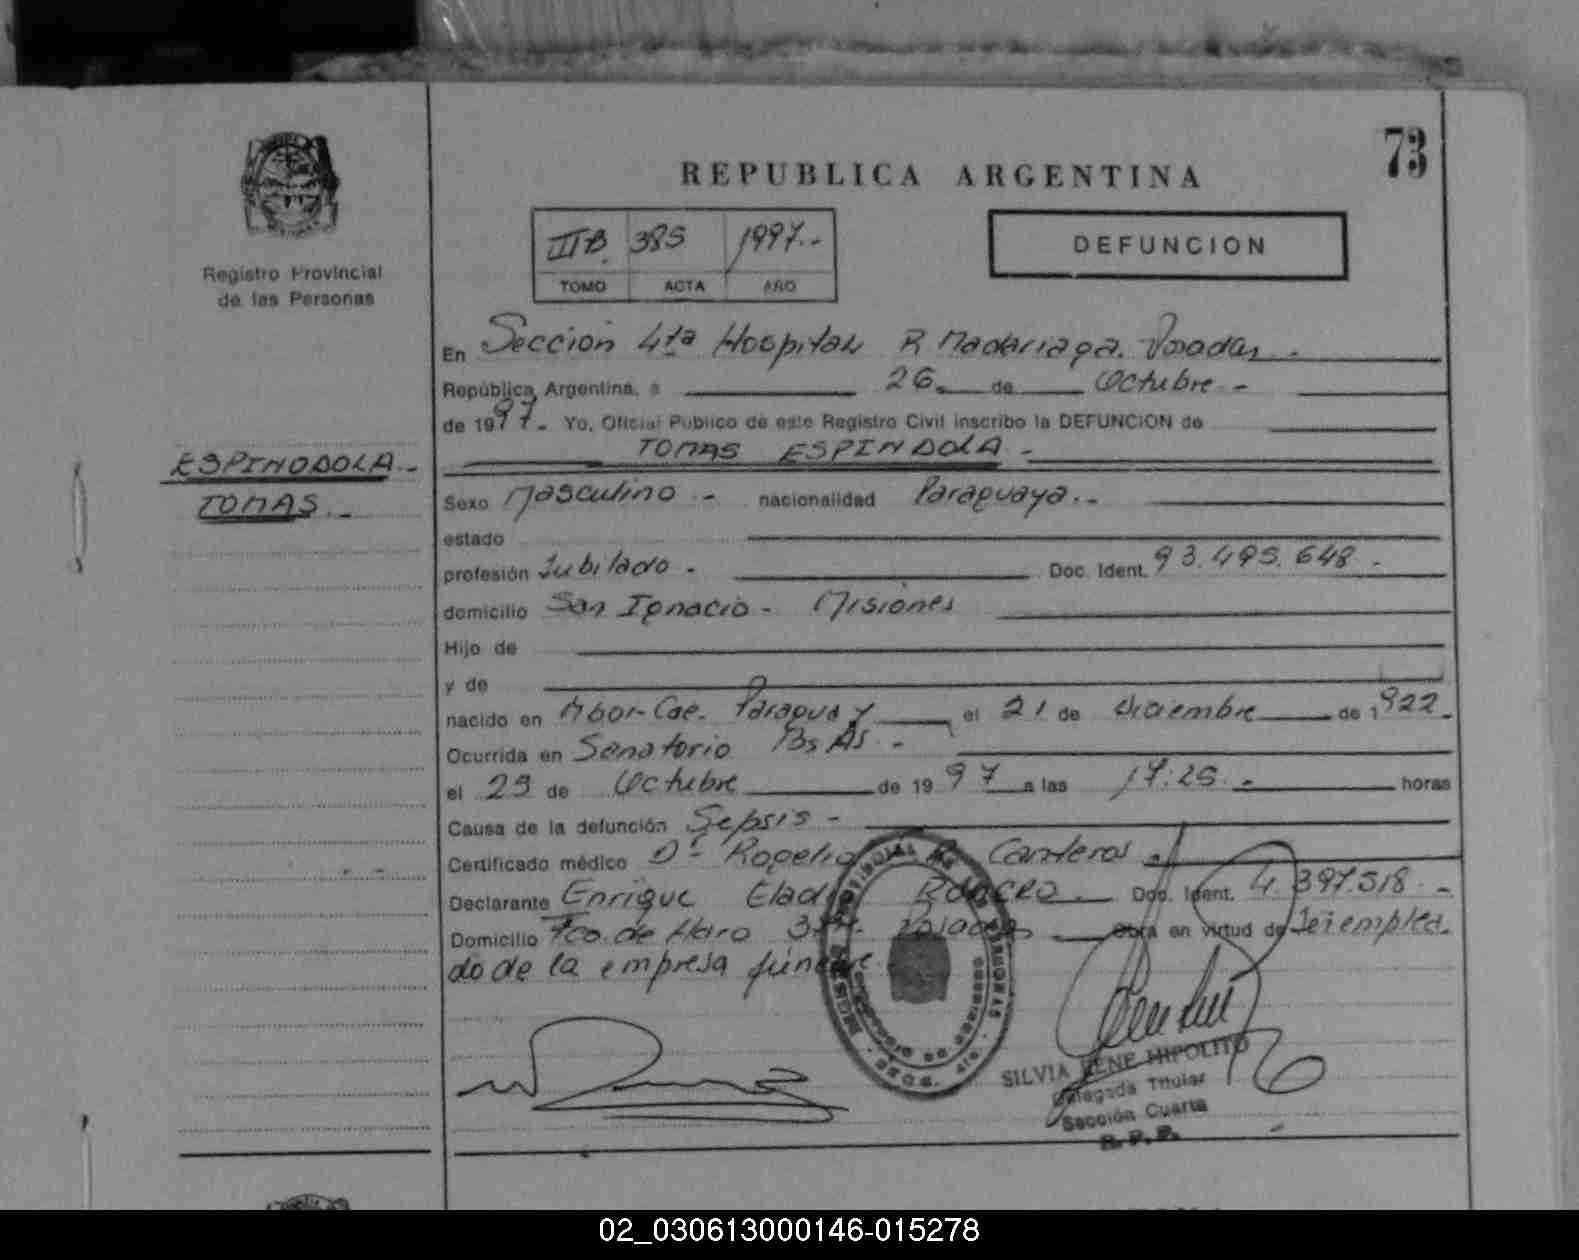 73
REPUBLICA ARGENTINA
Registro Provincial
de las Personas
III B. 385 1997.-
TOMO ACTA AÑO
DEFUNCION
En Sección 4ta Hospital R Madariaga. Posadas.-
República Argentina, a 26. de Octubre.-
de 1997.- Yo, Oficial Público de este Registro Civil inscribo la DEFUNCION de
TOMAS ESPINDOLA.-
ESPINODOLA.-
TOMAS.-
Sexo Masculino.- nacionalidad Paraguaya.-
estado
profesión Jubilado.- Doc. Ident. 93.495.648.-
domicilio San Ignacio- Misiones
Hijo de
y de
nacido en Paraguay el 21 de Diciembre de 1922.
Ocurrida en Sanatorio Bs As.-
el 25 de Octubre de 1997 a las 17:25.- horas
Causa de la defunción Sepsis-
Certificado médico Dr- Rogelio Canteros.
Declarante Enrique ROMERO. Doc. Ident. 4.397.518.-
Domicilio Fco. de Haro Posadas Obra en virtud de Ser emplea-
do de la empresa fúnebre
SILVIA RENE HIPOLITO
Delegada Titular
Sección Cuarta
R. P. P.
02_030613000146-015278